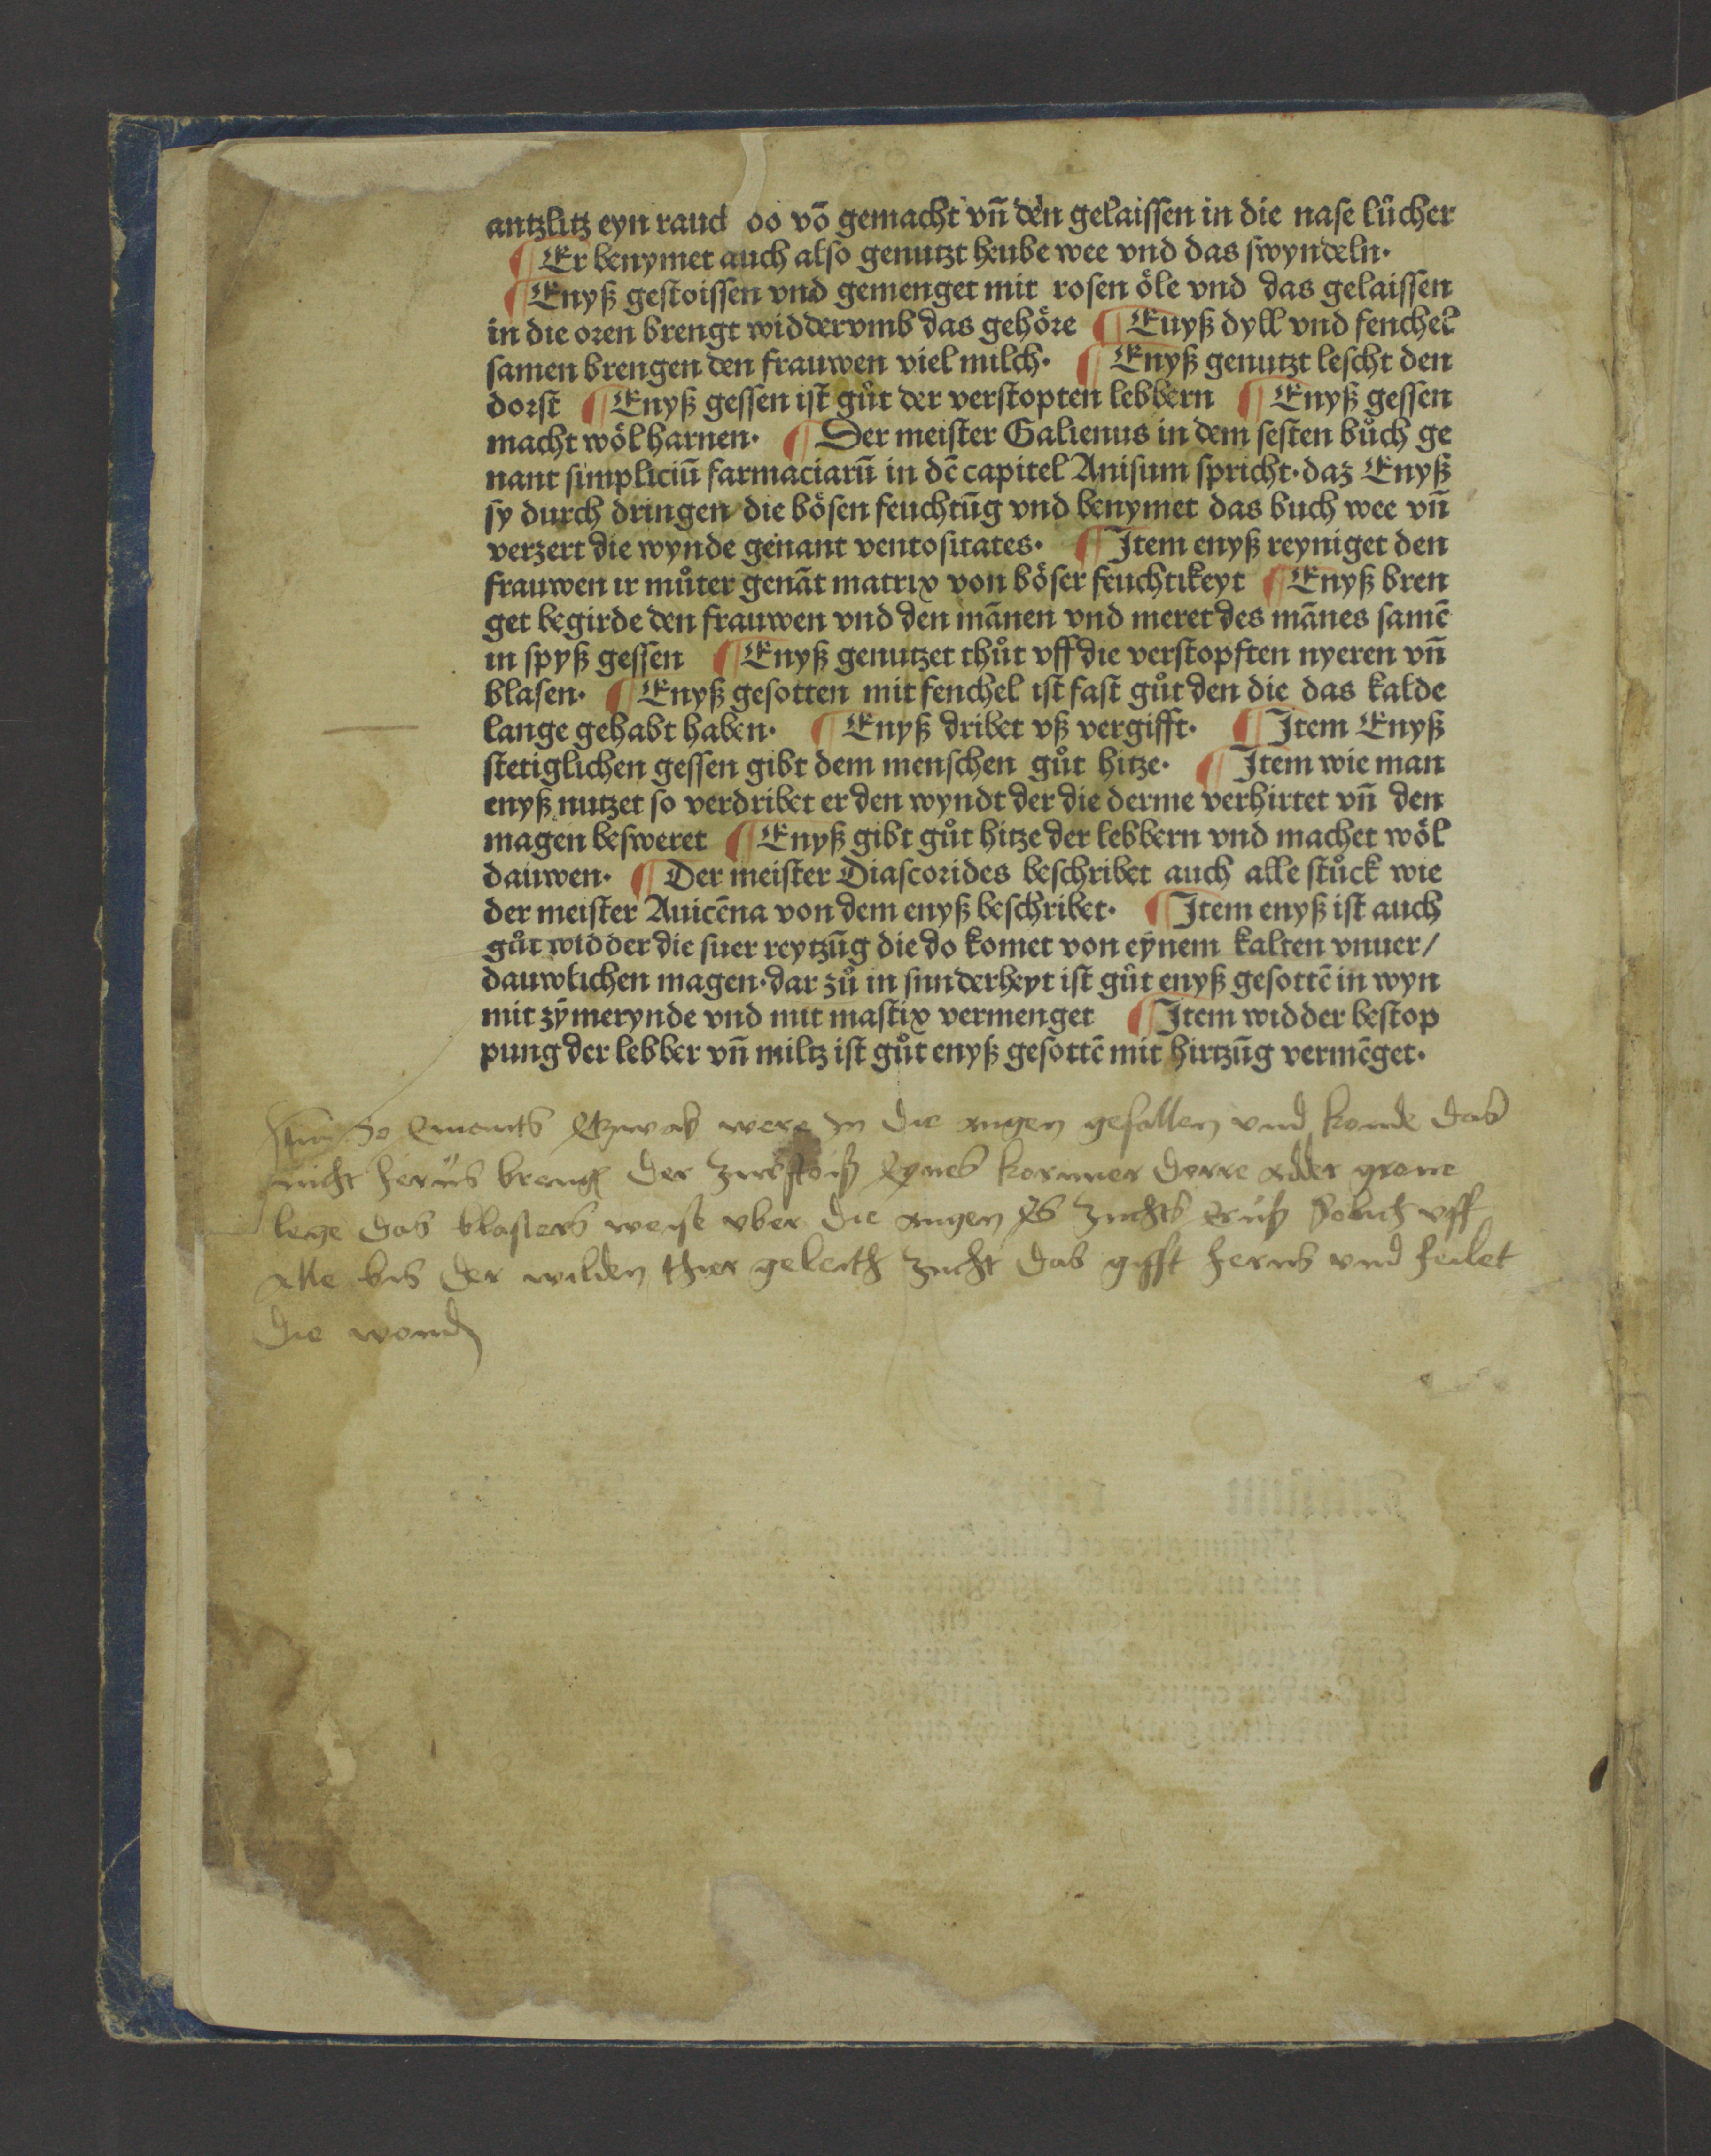 antzlitz eyn raud oo võ gemacht vñ den gelaissen in die nase lůcher
¶ Er benymet auch also genutzt heube wee vnd das swyndeln·
¶ Enyß gestoissen vnd gemenget mit rosen öle vnd das gelaissen
in die oren brengt widdervmb das gehöre ¶ Euyß dyll vnd fenchel
samen brengen den frauwen viel milch· ¶ Enyß genutzt lescht den
dorst ¶ Enyß gessen ist gůt der verstopten lebbern ¶ Enyß gessen
macht wöl harnen· ¶ Der meister Galienus in dem sesten bůch ge
nant simpliciũ farmaciarũ in dẽ capitel Anisum spricht· daz Enyß
sy durch dringen die bösen feuchtũg vnd benymet das buch wee vñ
verzert die wynde genant ventositates· ¶ Item enyß reyniget den
frauwen ir můter genãt matrix von böser feuchtikeyt ¶ Enyß bren
get begirde den frauwen vnd den mãnen vnd meret des mãnes samẽ
in spyß gessen ¶ Enyß genutzet thůt vff die verstopften nyeren vñ
blasen· ¶ Enyß gesotten mit fenchel ist fast gůt den die das kalde
lange gehabt haben· ¶ Enyß dribet vß vergifft· ¶ Item Enyß
stetiglichen gessen gibt dem menschen gůt hitze· ¶ Item wie man
enyß nutzet so verdribet er den wyndt der die derme verhirtet vñ den
magen besweret ¶ Enyß gibt gůt hitze der lebbern vnd machet wöl
dauwen· ¶ Der meister Diascorides beschribet auch alle stůck wie
der meister Auicẽna von dem enyß beschribet· ¶ Item enyß ist auch
gůt widder die suer reytzũg die do komet von eynem kalten vnuer/
dauwlichen magen· dar zů in sunderheyt ist gůt enyß gesottẽ in wyn
mit zỹmerynde vnd mit mastix vermenget ¶ Item widder bestop
pung der lebber vñ miltz ist gůt enyß gesottẽ mit hirtzũg vermẽget·
so etwas were in die augen gefallen vnd konde das
nicht herus der zurstois eynes korner dorre adder grone
lege das blasters weise vber die augen es zuchts solich vff
alle bis der wilden thier geleith zucht das gifft herus vnd heilet
die